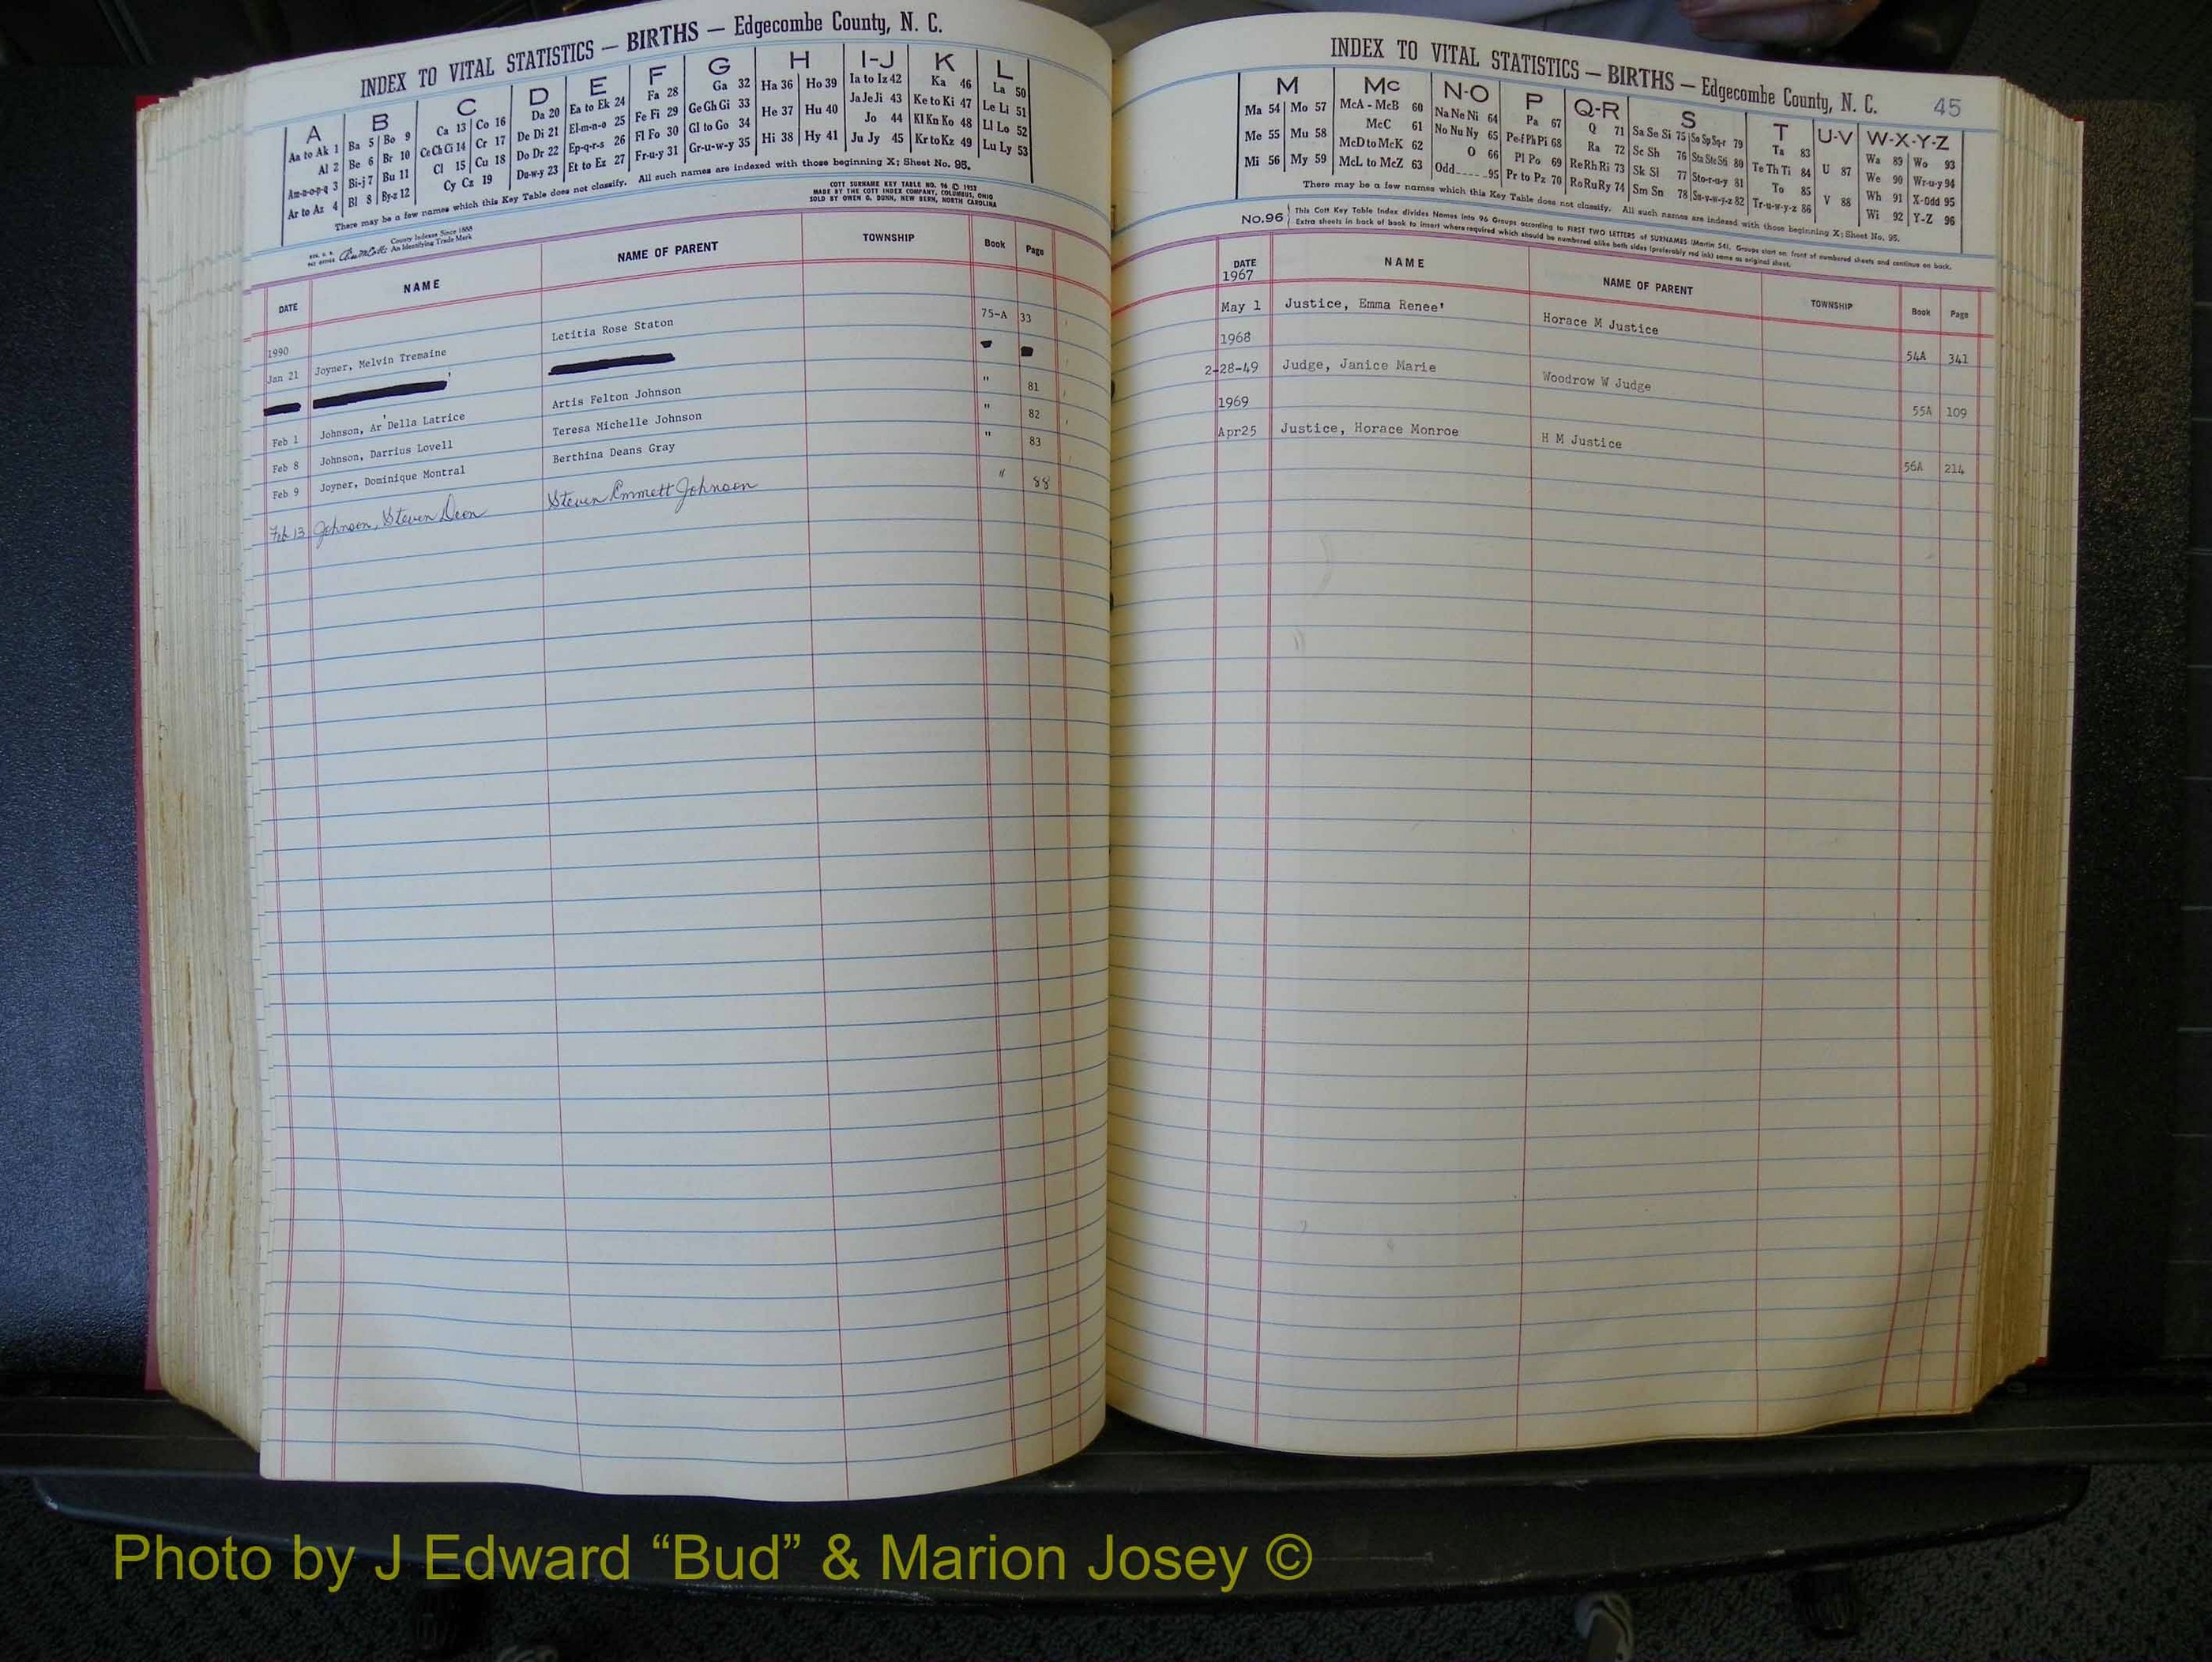 INDEX TO VITAL STATISTICS — BIRTHS — Edgecombe County, N. C.
A B C D E F G H I-J K L
Aa to Ak 1 Ba 5 Bo 9 Ca 13 Co 16 Da 20 Ea to Ek 24 Fa 28 Ga 32 Ha 36 Ho 39 Ia to Iz 42 Ka 46 La 50
Al 2 Be 6 Br 10 Ce Ch Ci 14 Cr 17 De Di 21 El-m-n-o 25 Fe Fi 29 Ge Gh Gi 33 He 37 Hu 40 Ja Je Ji 43 Ke to Ki 47 Le Li 51
Am-n-o-p-q 3 Bi-j 7 Bu 11 Cl 15 Cu 18 Do Dr 22 Ep-q-r-s 26 Fl Fo 30 Gl to Go 34 Hi 38 Hy 41 Jo 44 Kl Kn Ko 48 Ll Lo 52
Ar to Az 4 Bl 8 By-z 12 Cy Cz 19 Du-w-y 23 Et to Ez 27 Fr-u-y 31 Gr-u-w-y 35 Ju Jy 45 Kr to Kz 49 Lu Ly 53
There may be a few names which this Key Table does not classify. All such names are indexed with those beginning X; Sheet No. 95.
COTT SURNAME KEY TABLE NO. 96 © 1952
MADE BY THE COTT INDEX COMPANY, COLUMBUS, OHIO
SOLD BY OWEN G. DUNN, NEW BERN, NORTH CAROLINA
County Indexes Since 1888
An Identifying Trade Mark
DATE NAME NAME OF PARENT TOWNSHIP Book Page
1990
Jan 21 Joyner, Melvin Tremaine Letitia Rose Staton 75-A 33
Feb 1 Johnson, Ar'Della Latrice Artis Felton Johnson " 81
Feb 8 Johnson, Darrius Lovell Teresa Michelle Johnson " 82
Feb 9 Joyner, Dominique Montral Berthina Deans Gray " 83
Feb 13 Johnson, Steven Deon Steven Emmett Johnson " 88
INDEX TO VITAL STATISTICS — BIRTHS — Edgecombe County, N. C. 45
M Mc N-O P Q-R S T U-V W-X-Y-Z
Ma 54 Mo 57 McA - McB 60 Na Ne Ni 64 Pa 67 Q 71 Sa Se Si 75 So Sp Sq-r 79 Ta 83 U 87 Wa 89 Wo 93
Me 55 Mu 58 McC 61 No Nu Ny 65 Pe-f Ph Pi 68 Ra 72 Sc Sh 76 Sta Ste Sti 80 Te Th Ti 84 V 88 We 90 Wr-u-y 94
Mi 56 My 59 McD to McK 62 O 66 Pl Po 69 Re Rh Ri 73 Sk Sl 77 Sto-r-u-y 81 To 85 Wh 91 X-Odd 95
McL to McZ 63 Odd 95 Pr to Pz 70 Ro Ru Ry 74 Sm Sn 78 Su-v-w-y-z 82 Tr-u-w-y-z 86 Wi 92 Y-Z 96
There may be a few names which this Key Table does not classify. All such names are indexed with those beginning X; Sheet No. 95.
No.96 This Cott Key Table Index divides Names into 96 Groups according to FIRST TWO LETTERS of SURNAMES (Martin 54). Groups start on front of numbered sheets and continue on back.
Extra sheets in back of book to insert where required which should be numbered alike both sides (preferably red ink) same as original sheet.
DATE NAME NAME OF PARENT TOWNSHIP Book Page
1967
May 1 Justice, Emma Renee' Horace M Justice 54A 341
1968
2-28-49 Judge, Janice Marie Woodrow W Judge 55A 109
1969
Apr25 Justice, Horace Monroe H M Justice 56A 214
Photo by J Edward “Bud” & Marion Josey ©